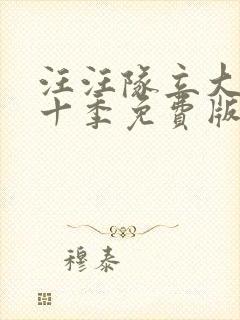 汪汪隊立大
十季免費版
穆泰